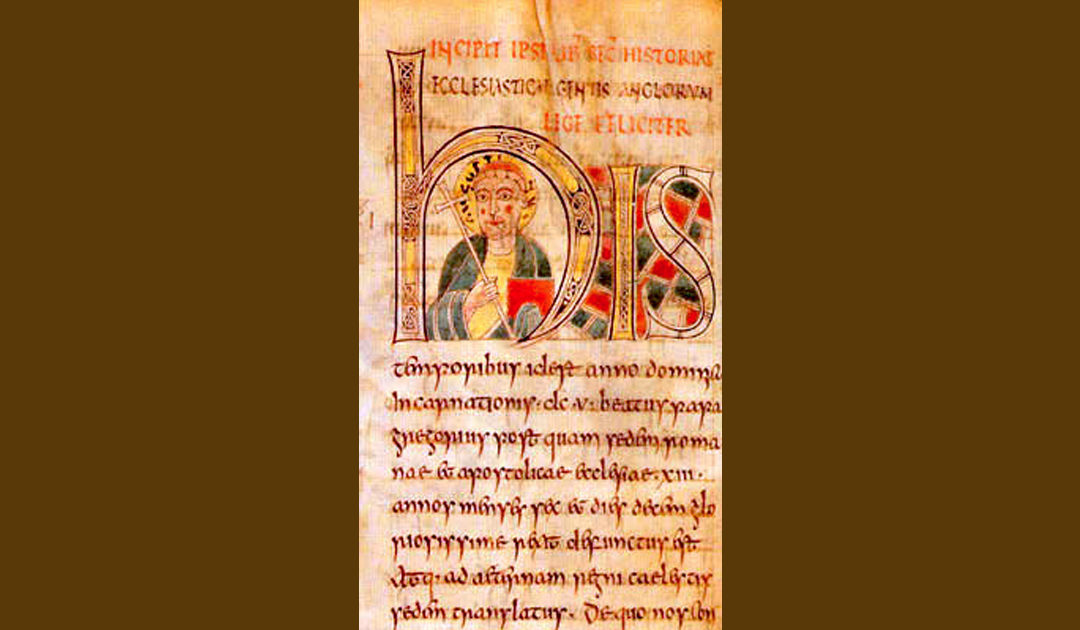 INCIPIT IPSI LIB SEC HISTORIAE
ECCLESIASTICAE GENTIS ANGLORUM
LEGE FELICITER
AUGUSTI
hIS
temporibus id est anno dominicae
Incarnationis · dc · v · beatus papa
gregorius post quam sedem roma
nae et apostolicae ecclesiae · xiii ·
annos menses sex et dies decem glo
riosissime rexit defunctus est
atq · ad aeternam regni caelestis
sedem translatus · De quo nos con